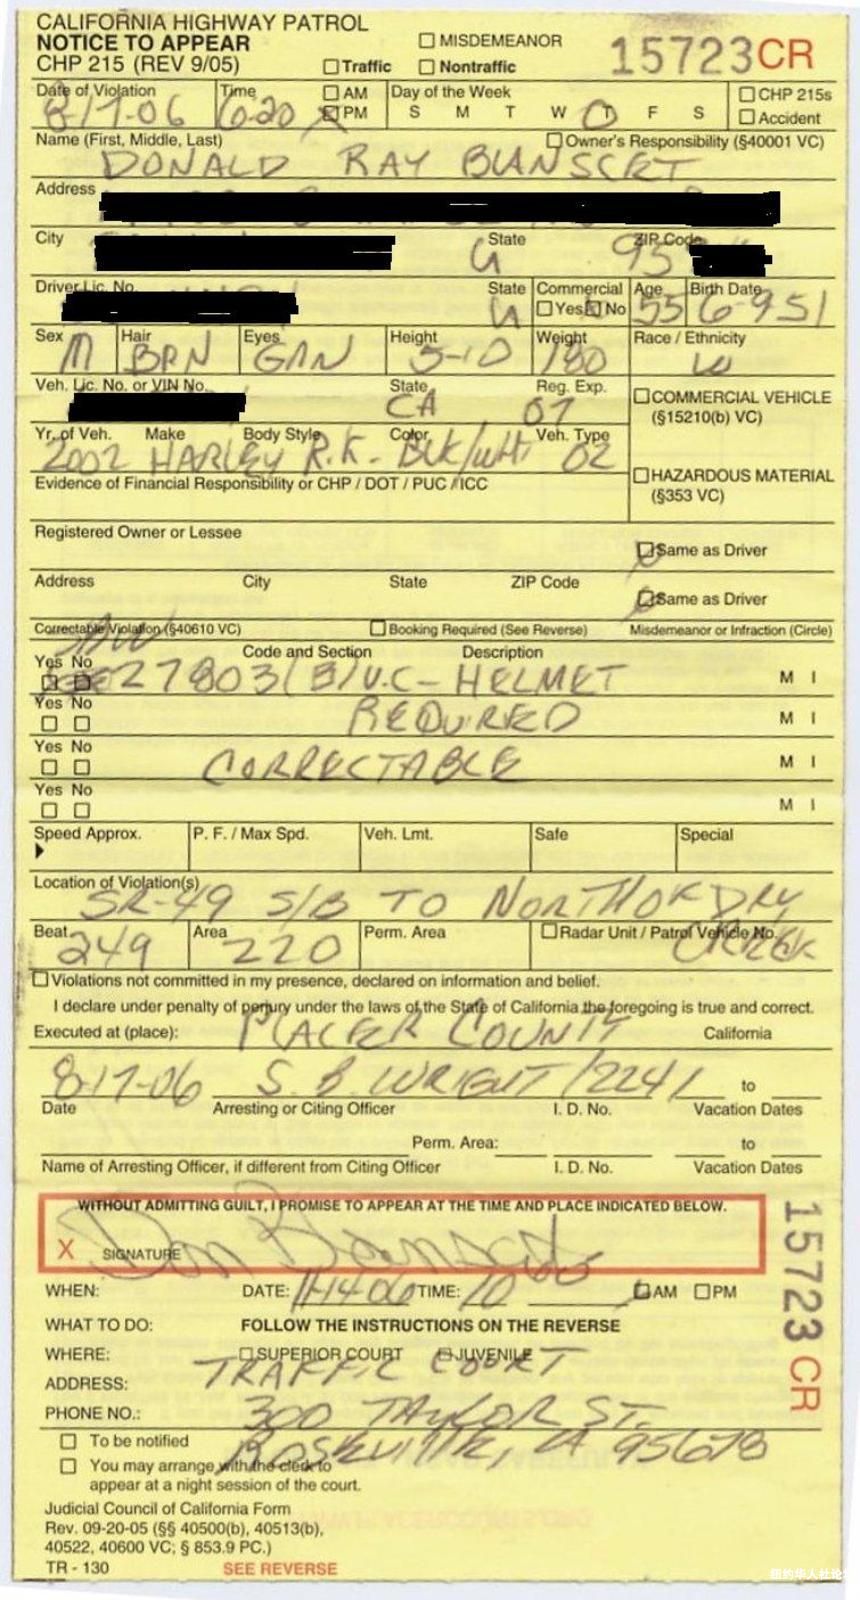 CALIFORNIA HIGHWAY PATROL
NOTICE TO APPEAR
CHP 215 (REV 9/05)
MISDEMEANOR
Traffic Nontraffic
15723CR
Date of Violation Time AM PM Day of the Week CHP 215s
8-17-06 6:20 S M T W T F S Accident
Name (First, Middle, Last) Owner's Responsibility (§40001 VC)
DONALD RAY BLANSCET
Address
City State ZIP Code
CA 95
Driver Lic. No. State Commercial Age Birth Date
CA Yes No 55 6-9-51
Sex Hair Eyes Height Weight Race / Ethnicity
M BRN GRN 5-10 180 W
Veh. Lic. No. or VIN No. State Reg. Exp. COMMERCIAL VEHICLE
CA 07 (§15210(b) VC)
Yr. of Veh. Make Body Style Color Veh. Type
2002 HARLEY R.K. - BLK/WHI 02
HAZARDOUS MATERIAL
(§353 VC)
Evidence of Financial Responsibility or CHP / DOT / PUC / ICC
Registered Owner or Lessee
Same as Driver
Address City State ZIP Code
Same as Driver
Correctable Violation (§40610 VC) Booking Required (See Reverse) Misdemeanor or Infraction (Circle)
Yes No Code and Section Description
27803(B) V.C - HELMET M I
Yes No REQUIRED M I
Yes No CORRECTABLE M I
Yes No M I
Speed Approx. P. F. / Max Spd. Veh. Lmt. Safe Special
Location of Violation(s)
SR-49 S/B TO NORTH OF DRY
CREEK
Beat Area Perm. Area Radar Unit / Patrol Vehicle No.
249 220
Violations not committed in my presence, declared on information and belief.
I declare under penalty of perjury under the laws of the State of California the foregoing is true and correct.
Executed at (place): PLACER COUNTY California
8-17-06 S. B. WRIGHT /2241 to
Date Arresting or Citing Officer I. D. No. Vacation Dates
Perm. Area: to
Name of Arresting Officer, if different from Citing Officer I. D. No. Vacation Dates
WITHOUT ADMITTING GUILT, I PROMISE TO APPEAR AT THE TIME AND PLACE INDICATED BELOW.
X SIGNATURE Don Blanscet
WHEN: DATE: 11-14-06 TIME: 10 AM PM
WHAT TO DO: FOLLOW THE INSTRUCTIONS ON THE REVERSE
WHERE: SUPERIOR COURT JUVENILE
TRAFFIC COURT
ADDRESS:
PHONE NO.: 300 TAYLOR ST.
ROSEVILLE, CA 95678
To be notified
You may arrange with the clerk to
appear at a night session of the court.
Judicial Council of California Form
Rev. 09-20-05 (§§ 40500(b), 40513(b),
40522, 40600 VC; § 853.9 PC.)
TR - 130 SEE REVERSE
15723 CR